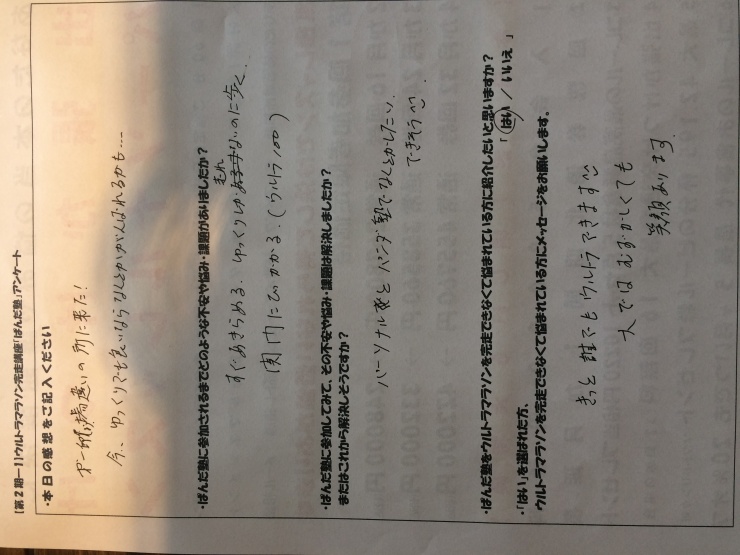 【第２期ー１】ウルトラマラソン完走講座「ぱんだ塾」アンケート
・本日の感想をご記入ください
場違いの所に来た!
今、ゆっくりでも良いならなんとかがんばれるかも…
・ぱんだ塾に参加されるまでどのような不安や悩み・課題がありましたか？
すぐあきらめる、ゆっくりしか走れないのに歩く、
関門にひっかかる。(ウルトラ100)
・ぱんだ塾に参加してみて、その不安や悩み・課題は解決しましたか？
またはこれから解決しそうですか？
パーソナル塾とパンダ塾でなんとかしたい、
できそう
・ぱんだ塾をウルトラマラソンを完走できなくて悩まれている方に紹介したいと思いますか？
「 はい / いいえ 」
・「はい」を選ばれた方、
ウルトラマラソンを完走できなくて悩まれている方にメッセージをお願いします。
きっと誰でもウルトラできます
人ではむずかしくても
笑顔あります。